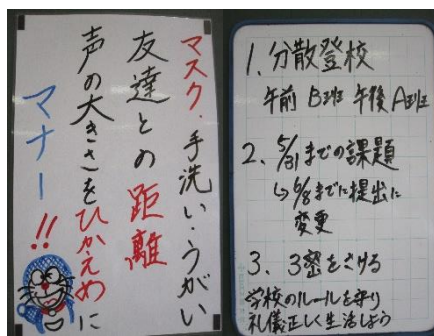 マスク・手洗い・うがい
友達との距離
声の大きさをひかえめに
マナー!!
1、分散登校
午前 B班 午後 A班
2、5/31までの課題
↳6/8までに提出に
変更
3、3密をさける
学校のルールを守り
礼儀正しく生活しよう